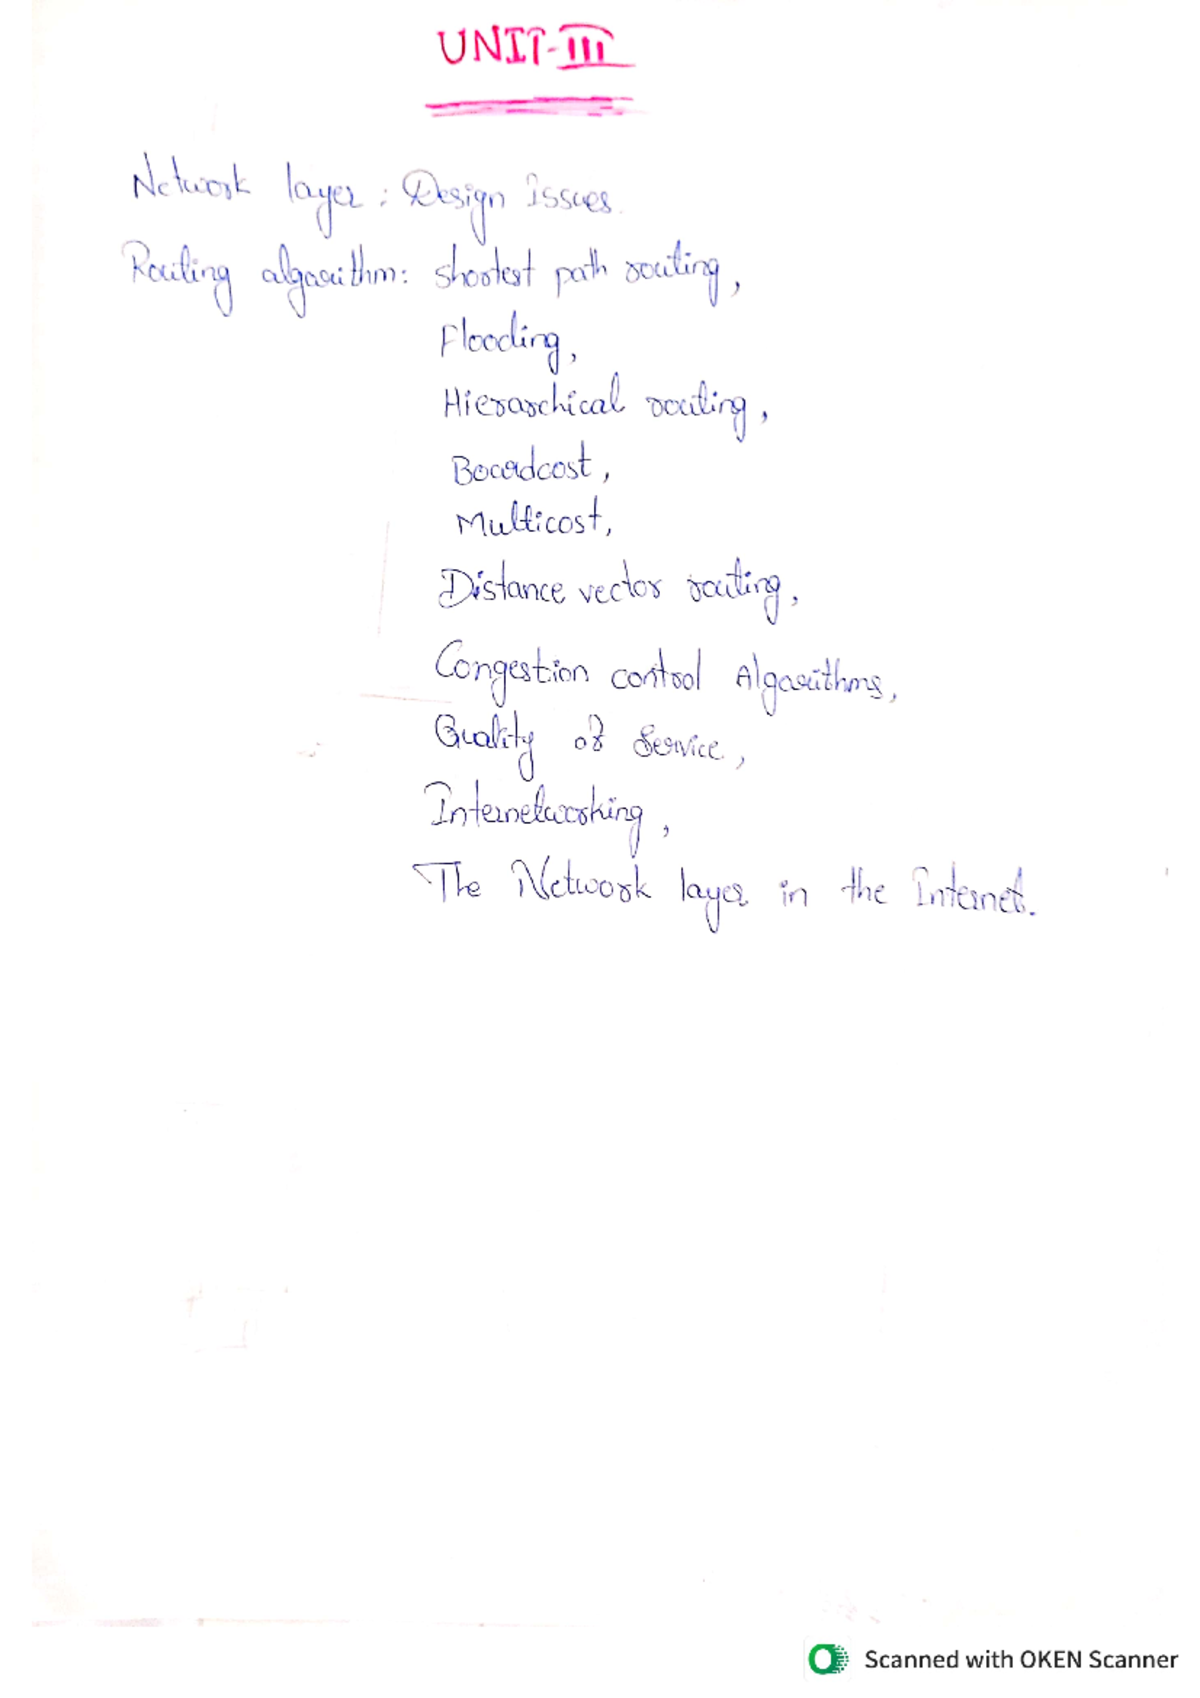 UNIT-III
Network layer : Design Issues.
Routing algorithm: shortest path routing,
Flooding,
Hierarchical routing,
Boradcost,
Multicost,
Distance vector routing,
Congestion control Algorithms,
Quality of Service,
Internetworking,
The Network layer in the Internet.
Scanned with OKEN Scanner